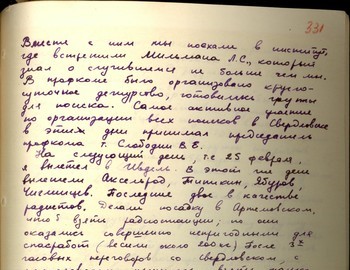 331
Вместе с ним мы поехали в институт,
где встретили Мильмана Л.С., который
знал о случившемся не больше чем мы.
В профкоме было организовано кругло-
суточное дежурство, готовились группы
для поиска. Самое активное участие
по организации всех поисков в Свердловске
в этих дни принимал председатель
профкома т. Слободин В.Е.
На следующий день, т.е 25 февраля
я вылетел в Ивдель. В этот же день
вылетели Аксельрод, Типикин, Ябуров,
Чигвинцев. Последние двое в качестве
радистов. Делали посадку в Артемовском,
чтоб взять радиостанции, но они
оказались совершенно непригодными для
спасработ (весили около 200 кг) После 3х
часовых переговоров со Свердловском, с